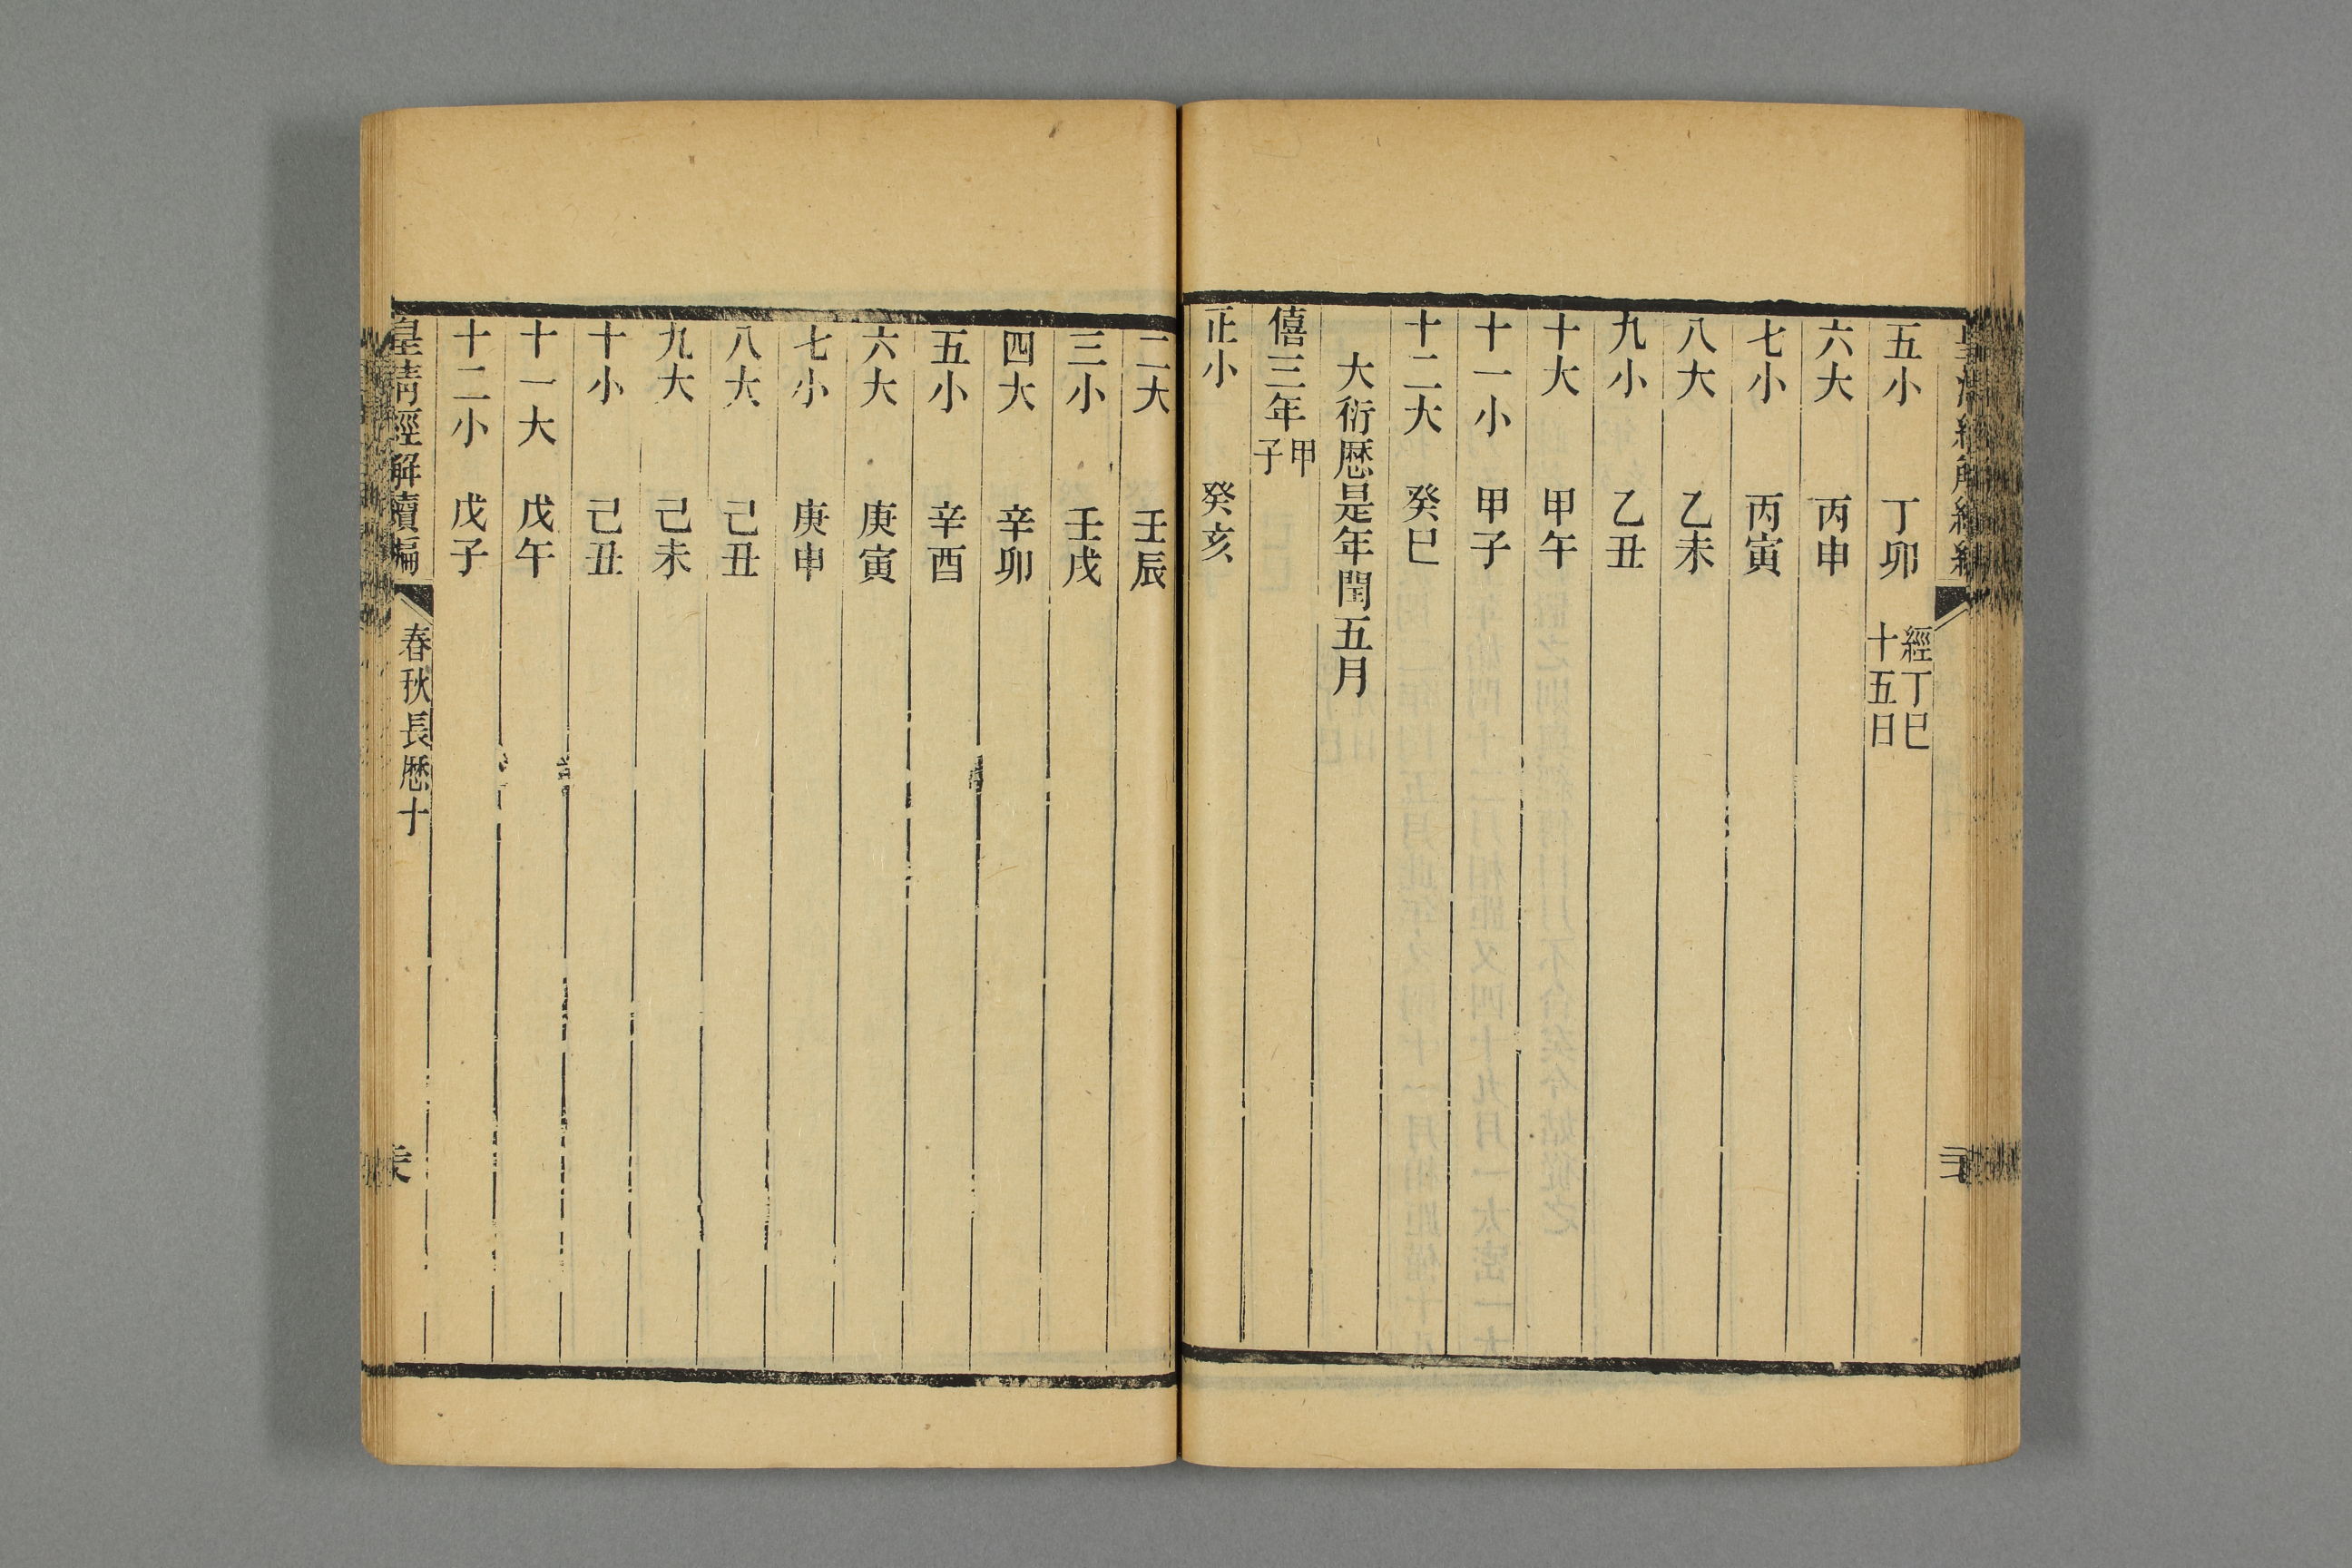 五小　丁卯　經丁巳十五日
六大　丙申
七小　丙寅
八大　乙未
九小　乙丑
十大　甲午
十一小　甲子
十二大　癸巳
大衍厯是年閏五月
僖三年甲子
正小　癸亥
二大　壬辰
三小　壬戌
四大　辛卯
五小　辛酉
六大　庚寅
七小　庚申
八大　己丑
九大　己未
十小　己丑
十一大　戊午
十二小　戊子
皇清經解續編　春秋長厯十